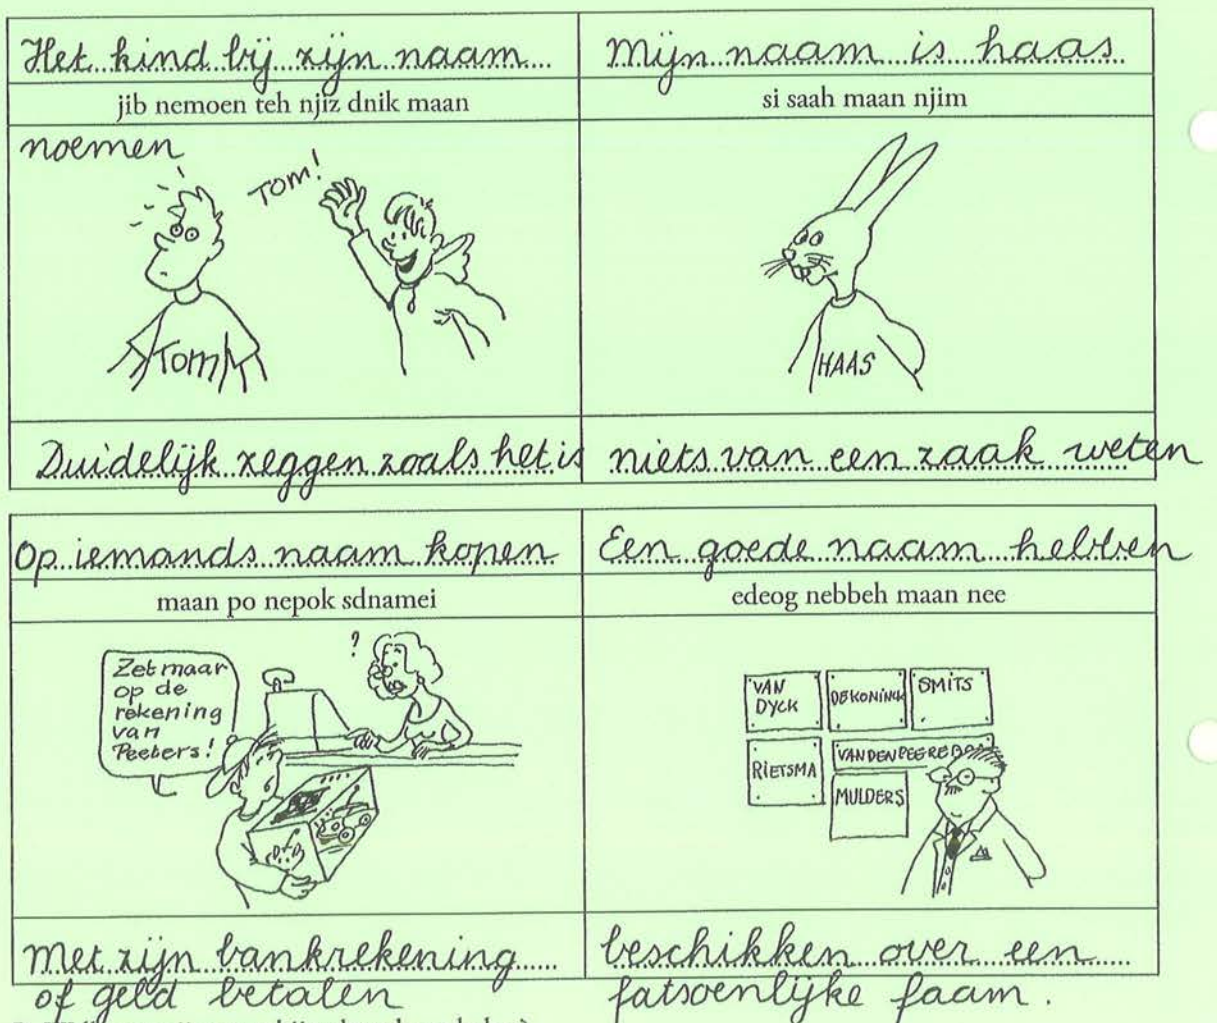 Het kind bij zijn naam
jib nemoen teh njiz dnik maan
noemen
TOM!
TOM
Duidelijk zeggen zoals het is
Mijn naam is haas
si saah maan njim
HAAS
niets van een zaak weten
Op iemands naam kopen
maan po nepok sdnamei
?
Zet maar
op de
rekening
van
Peeters!
Met zijn bankrekening
of geld betalen
Een goede naam hebben
edeog nebbeh maan nee
VAN
DYCK
DEKONINCK
SMITS
RIETSMA
VANDENPEEREBOOM
MULDERS
beschikken over een
fatsoenlijke faam.